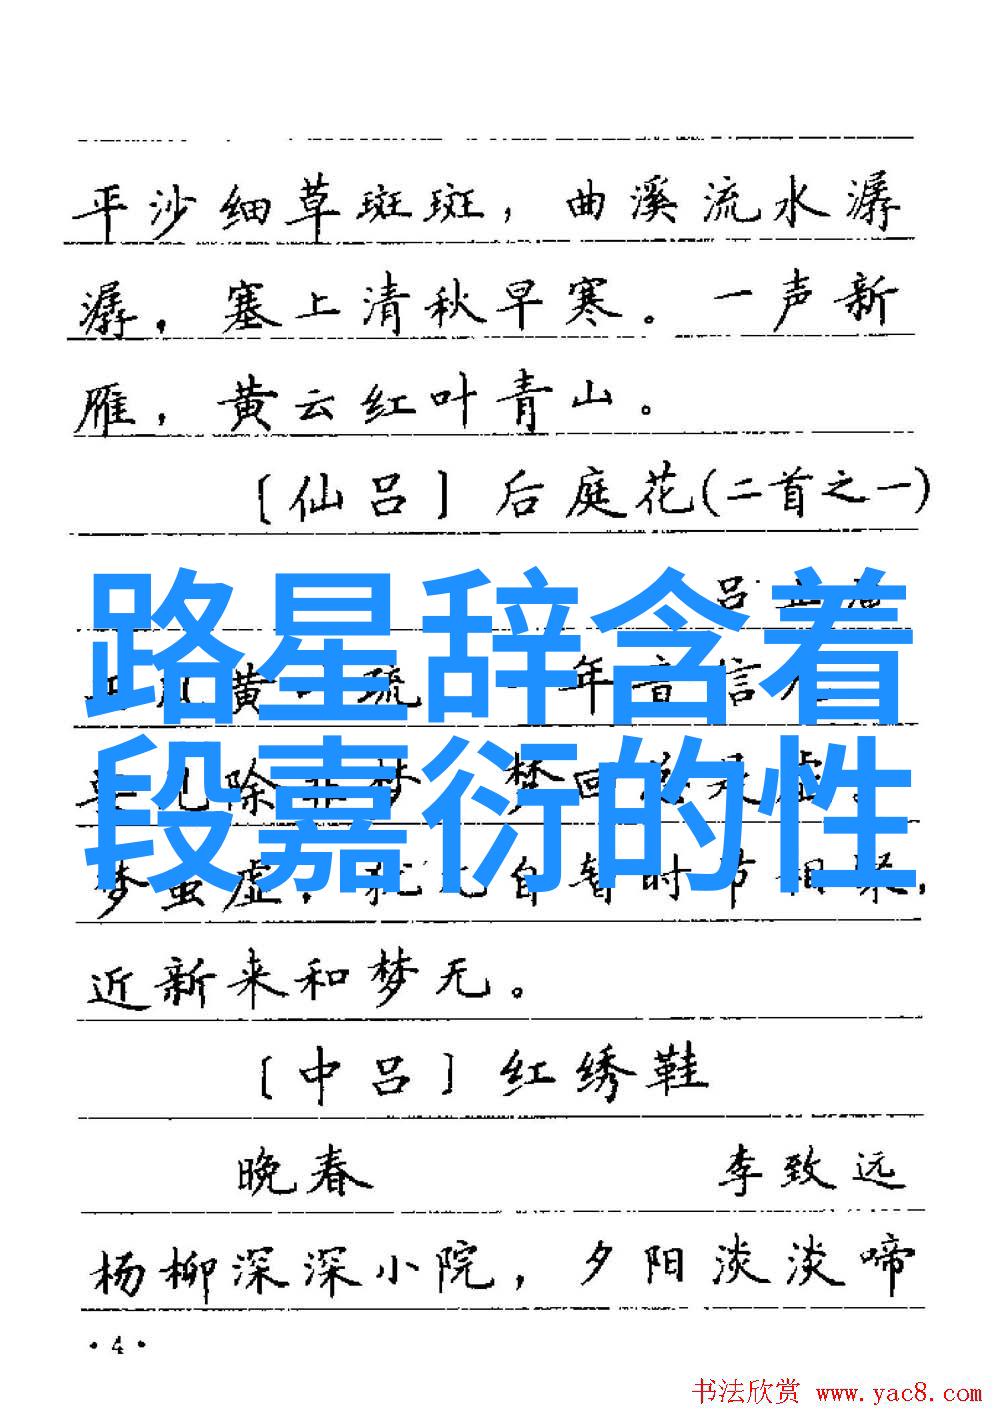 平沙细草斑斑，曲溪流水潺
潺，塞上清秋早寒。一声新
雁，黄云红叶青山。
〔仙吕〕后庭花(二首之一)
吕
路星辞含着
黄 琉 年音信
段嘉衍的性
除 非梦 梦回 是虚
梦虽虚，犹 自暂时节相聚，
近新来和梦无。
〔中吕〕红绣鞋
晚春 李致远
杨柳深深小院，夕阳淡淡啼
·4·
书法欣赏 www.yac8.com